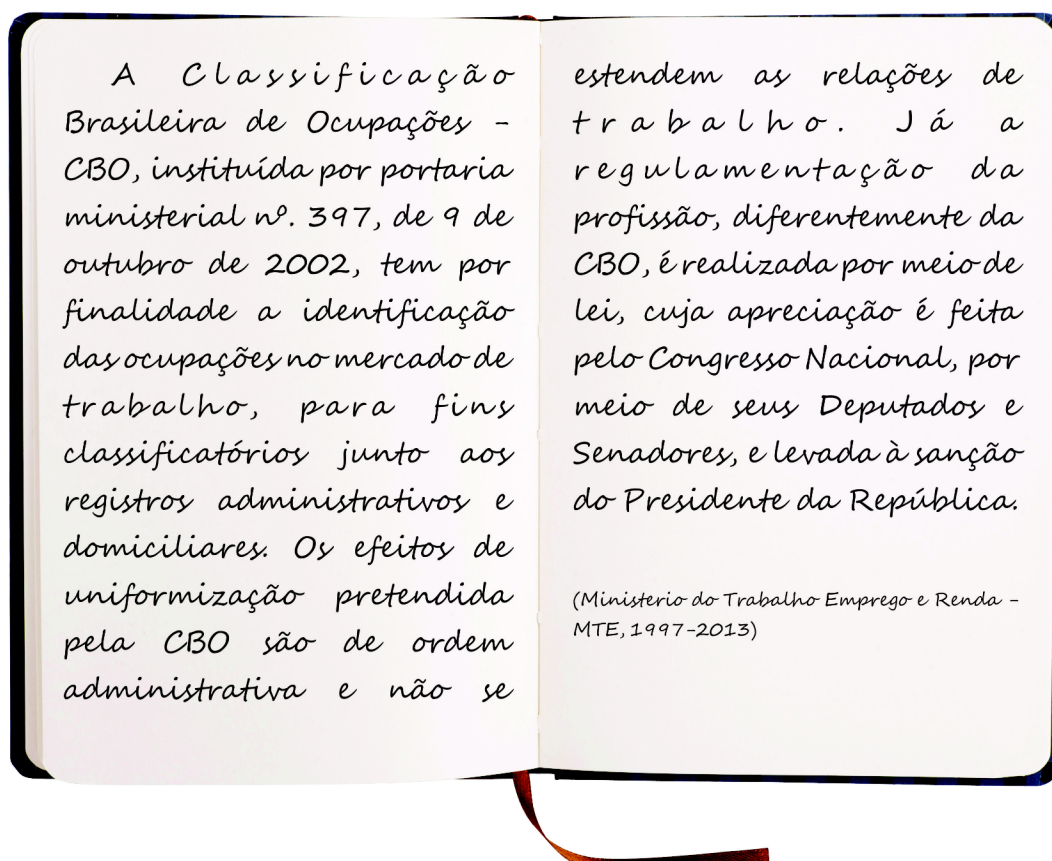 A Classificação
Brasileira de Ocupações -
CBO, instituída por portaria
ministerial nº. 397, de 9 de
outubro de 2002, tem por
finalidade a identificação
das ocupações no mercado de
trabalho, para fins
classificatórios junto aos
registros administrativos e
domiciliares. Os efeitos de
uniformização pretendida
pela CBO são de ordem
administrativa e não se
estendem as relações de
trabalho. Já a
regulamentação da
profissão, diferentemente da
CBO, é realizada por meio de
lei, cuja apreciação é feita
pelo Congresso Nacional, por
meio de seus Deputados e
Senadores, e levada à sanção
do Presidente da República.
(Ministerio do Trabalho Emprego e Renda -
MTE, 1997-2013)